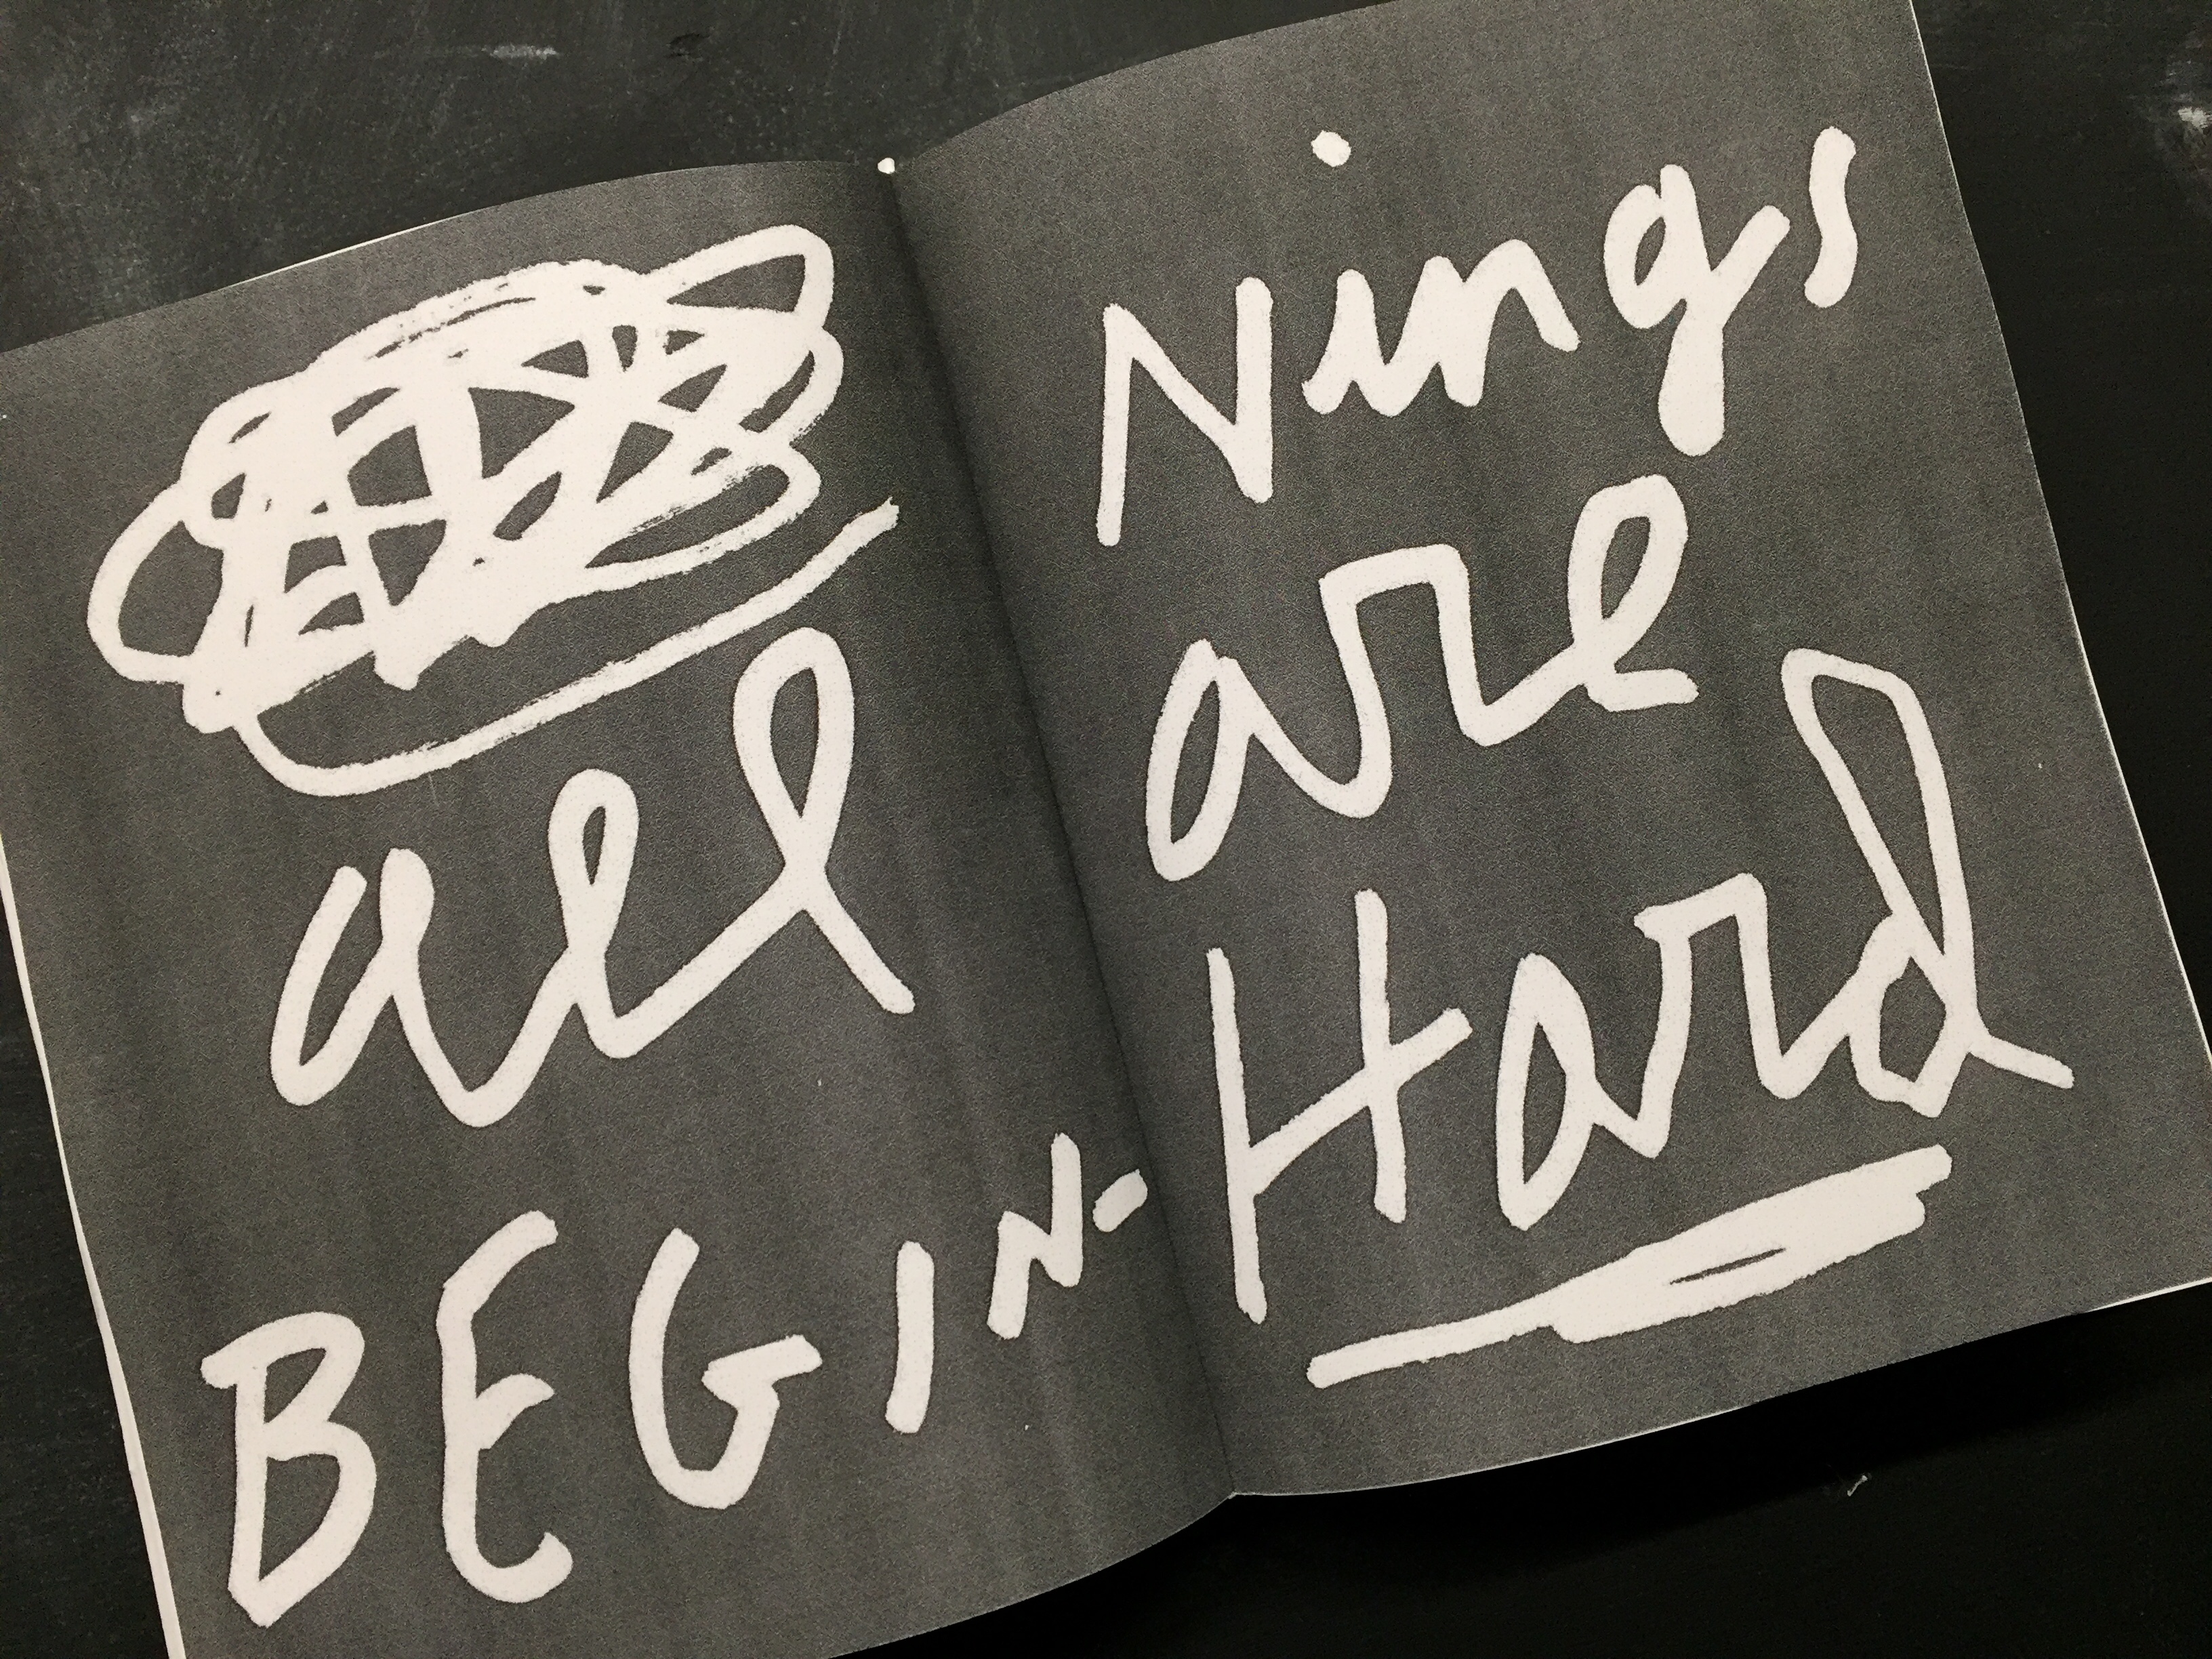 all
BEGIN-
Nings
are
Hard